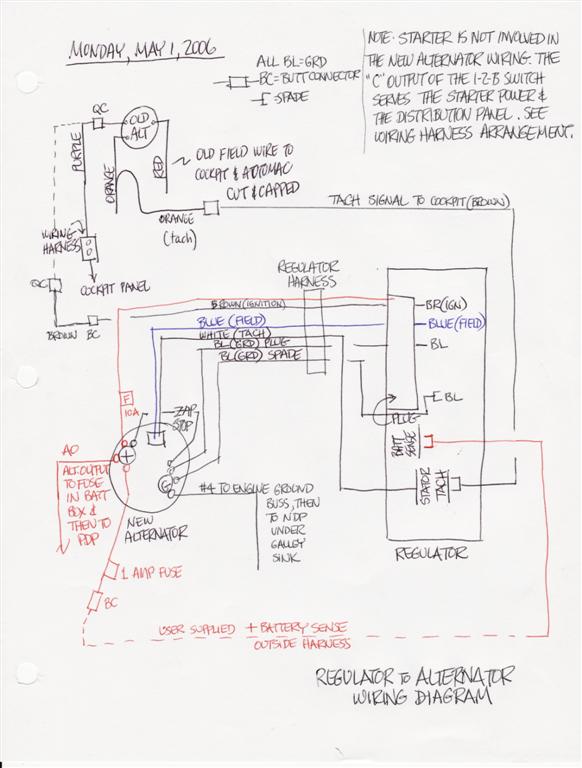 MONDAY, MAY 1, 2006
ALL BL=GRD
BC=BUTT CONNECTOR
SPADE
NOTE: STARTER IS NOT INVOLVED IN
THE NEW ALTERNATOR WIRING. THE
"C" OUTPUT OF THE 1-2-B SWITCH
SERVES THE STARTER POWER &
THE DISTRIBUTION PANEL. SEE
WIRING HARNESS ARRANGEMENT.
QC
OLD
ALT
PURPLE
ORANGE
RED
OLD FIELD WIRE TO
COCKPIT & AUTOMAC
CUT & CAPPED
ORANGE
(tach)
TACH SIGNAL TO COCKPIT (BROWN)
WIRING
HARNESS
COCKPIT PANEL
QC
BROWN BC
REGULATOR
HARNESS
BROWN (IGNITION)
BLUE (FIELD)
WHITE (TACH)
BL(GRD) PLUG
BL(GRD) SPADE
BR(IGN)
BLUE(FIELD)
BL
BL
PLUG
BATT
SENSE
STATOR
TACH
REGULATOR
F
10A
ZAP
STOP
AO
ALT. OUTPUT
TO FUSE
IN BATT
BOX &
THEN TO
PDP
+
G
NEW
ALTERNATOR
#4 TO ENGINE GROUND
BUSS, THEN
TO NDP
UNDER
GALLEY
SINK
1 AMP FUSE
BC
USER SUPPLIED + BATTERY SENSE
OUTSIDE HARNESS
REGULATOR TO ALTERNATOR
WIRING DIAGRAM